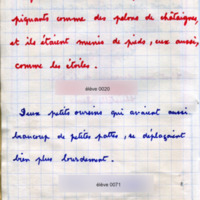 piquants comme des pelons de châtaignes,
et ils étaient munis de pieds, eux aussi,
comme les étoiles.
élève 0020
Deux petits oursins qui avaient aussi
beaucoup de petites pattes, se déplaçaient
bien plus lourdement.
élève 0071